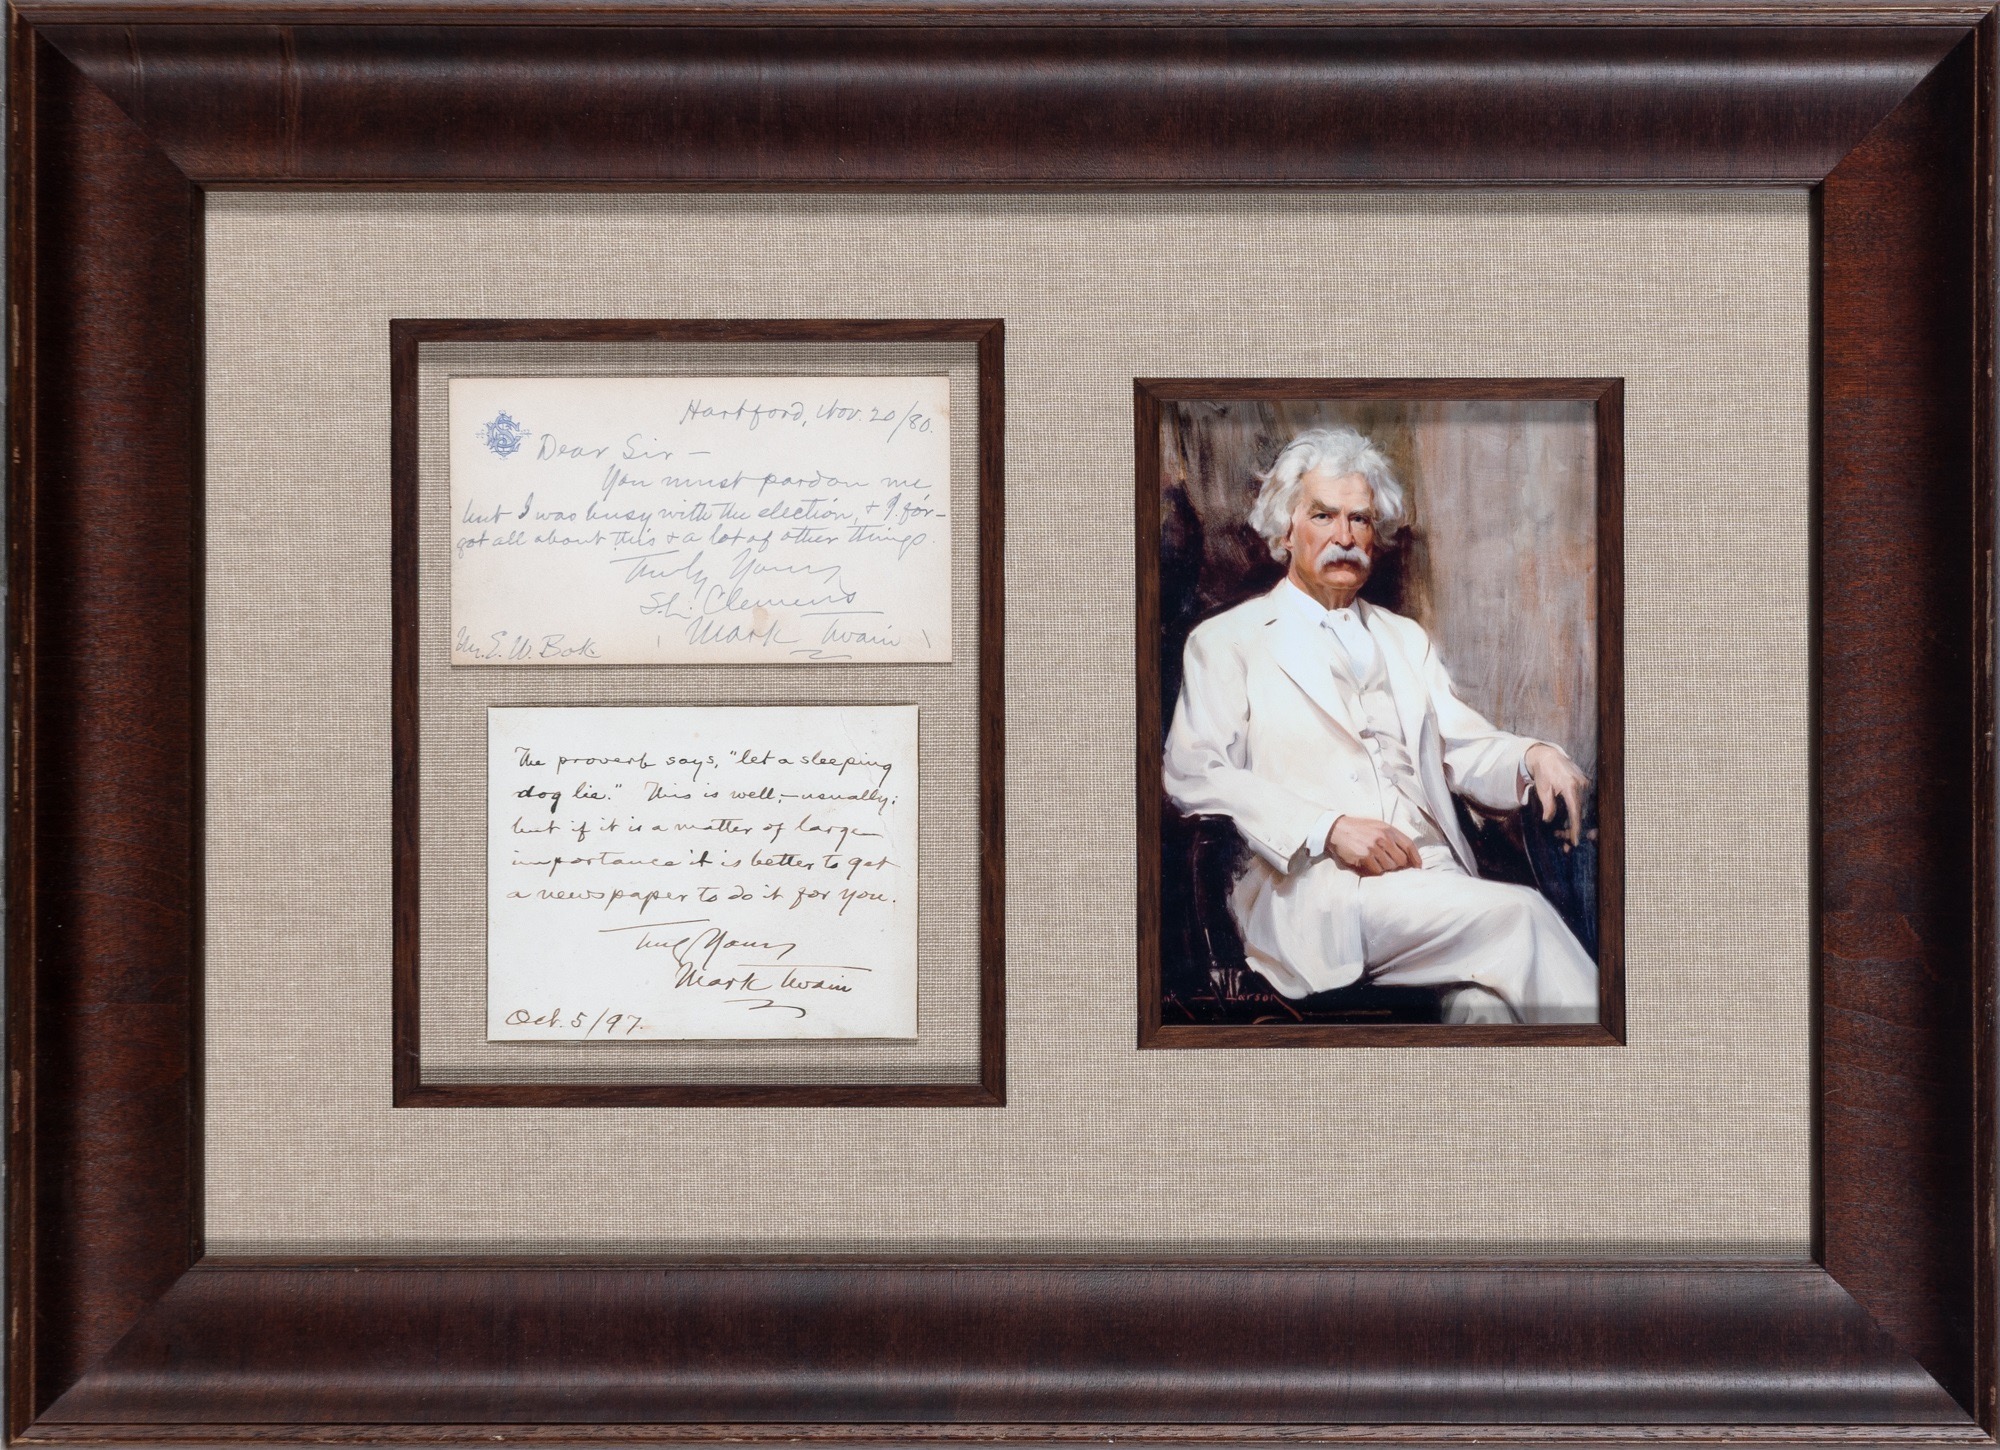 Hartford, Nov. 20/80.
Dear Sir —
You must pardon me
but I was busy with the election, & I for-
got all about this & a lot of other things.
Truly Yours
S.L. Clemens
Mark Twain
Mr. E. W. Bok.
The proverb says, "let a sleeping
dog lie." This is well, — usually;
but if it is a matter of large
importance it is better to get
a newspaper to do it for you.
Truly Yours
Mark Twain
Oct. 5/97.
Larson